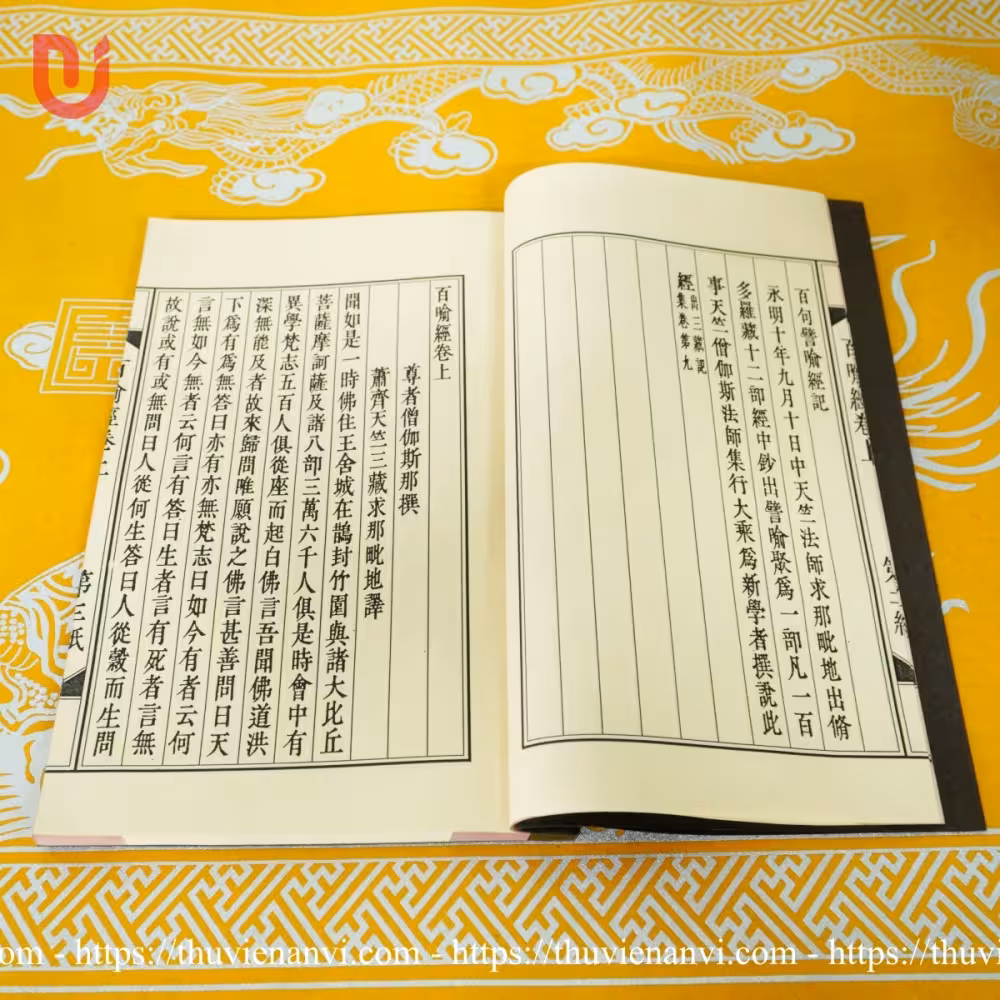 百喻經卷上
百句譬喻經記
永明十年九月十日中天竺法師求那毗地出脩
多羅藏十二部經中鈔出譬喻聚爲一部凡一百
事天竺僧伽斯法師集行大乘爲新學者撰說此
經出三藏記
集卷第九
百喻經卷上
尊者僧伽斯那撰
蕭齊天竺三藏求那毗地譯
聞如是一時佛住王舍城在鵲封竹園與諸大比丘
菩薩摩訶薩及諸八部三萬六千人俱是時會中有
異學梵志五百人俱從座而起白佛言吾聞佛道洪
深無能及者故來歸問唯願說之佛言甚善問曰天
下爲有爲無答曰亦有亦無梵志曰如今有者云何
言無如今無者云何言有答曰生者言有死者言無
故說或有或無問曰人從何生答曰人從穀而生問
第三紙
.com - https://thuvienanvi.com - https://thuvienanvi.com - https://thuvi